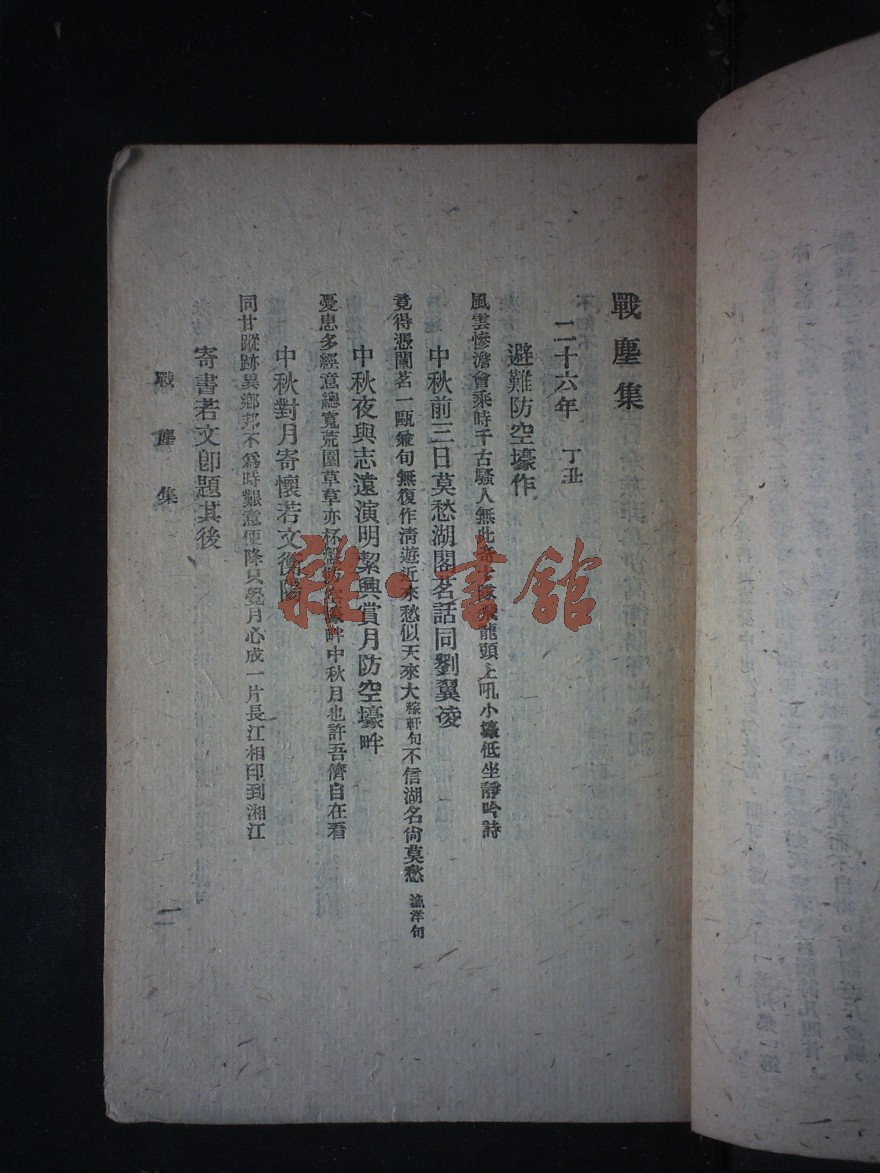 戰塵集
二十六年 丁丑
避難防空壕作
風雲慘澹會乘時千古騷人無此奇 隊飛龍頭上吼小壕低坐靜吟詩
中秋前三日莫愁湖閣茗話同劉翼凌
竟得憑闌茗一甌兼旬無復作清遊近來愁似天來大稼軒句不信湖名尙莫愁 漁洋句
中秋夜與志遠演明絜興賞月防空壕畔
憂患多經意總寬荒園草草亦杯盤防空壕畔中秋月也許吾儕自在看
中秋對月寄懷若文衡陽
同甘蹤跡異鄉邦不爲時艱意便降只覺月心成一片長江相印到湘江
寄書若文卽題其後
戰塵集
一
雜·書館